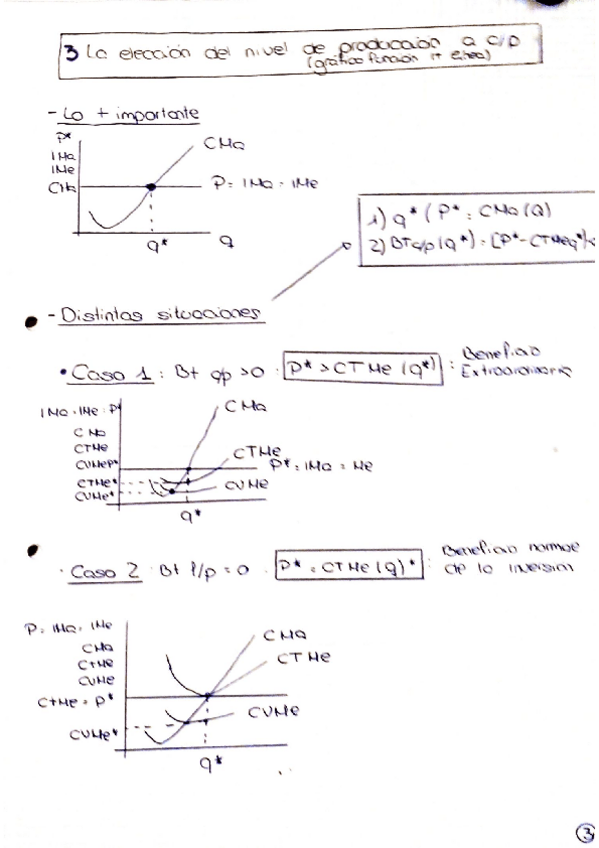 3 La elección del nivel de producción a c/p
(gráfico función
- Lo + importante
P*
IMa
IMe
CMa
CMa
P = IMa = IMe
q*
Q
1) q* (P* = CMa (Q)
2) BT c/p (q*) = [P* - CTMe q*]
- Distintas situaciones
• Caso 1 : Bt cp >0 : P* > CTMe (q*) : Beneficio
Extraordinario
IMa = IMe = P*
CMa
CTMe
CVMe P*
CTMe*
CVMe*
CMa
CTMe
P* = IMa = Me
CVMe
q*
· Caso 2 Bt l/p = 0 . P* = CTMe (q)* : Beneficio normal
de la inversión
P = IMa = IMe
CMa
CTMe
CVMe
CTMe = P*
CVMe*
CMa
CTMe
CVMe
q*
3